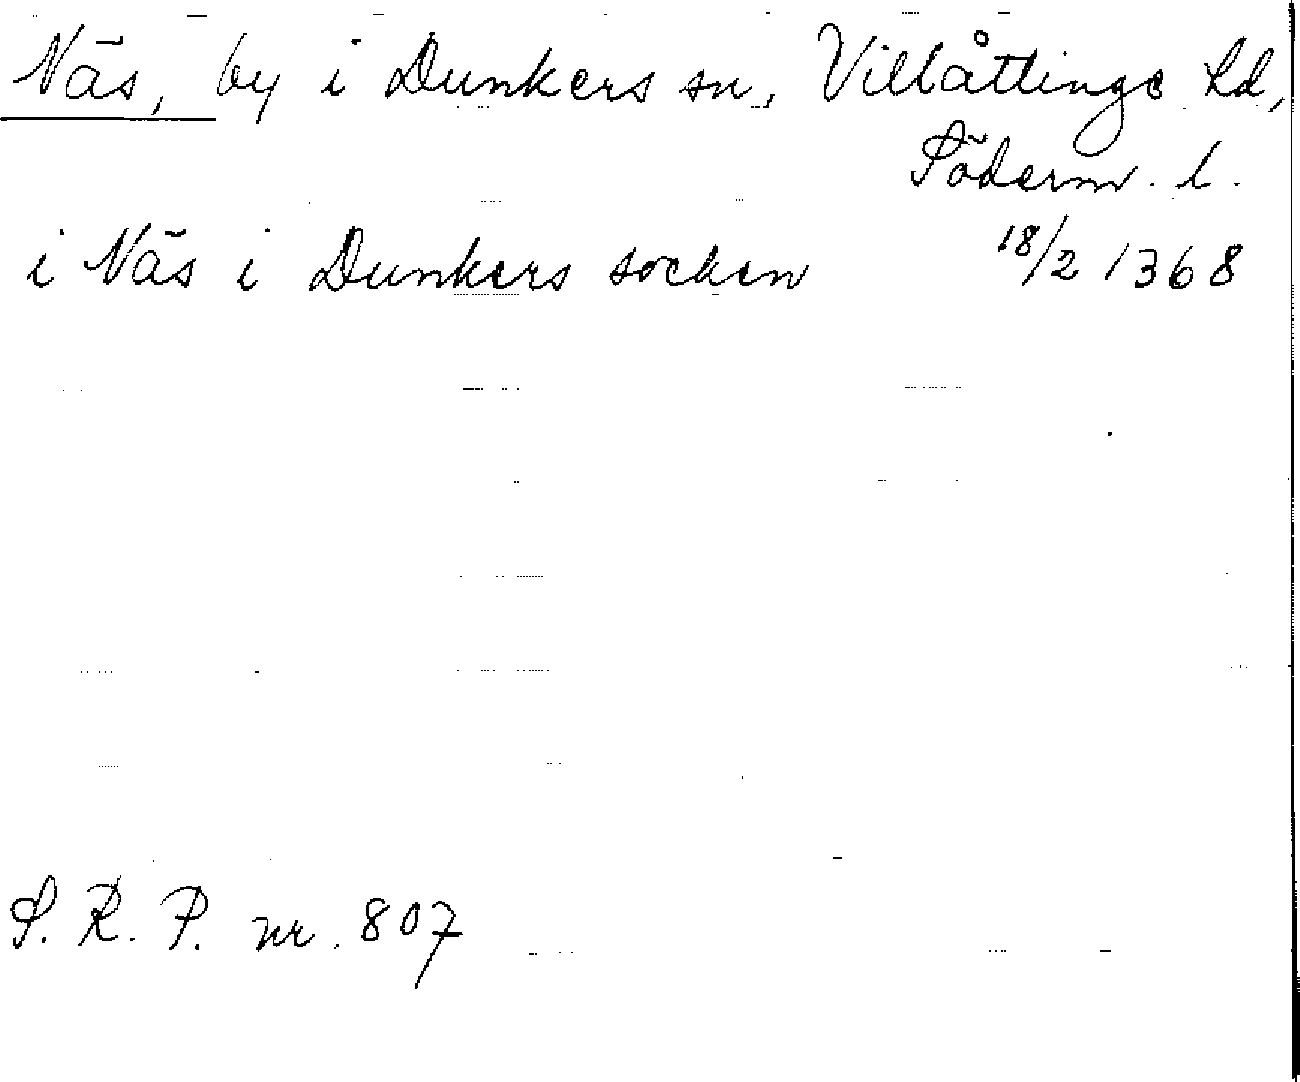 Näs, by i Dunkers sn, Villåttinge hd,
Söderm. l.
i Näs i Dunkers socken 18/2 1368
S. R. P. nr. 807